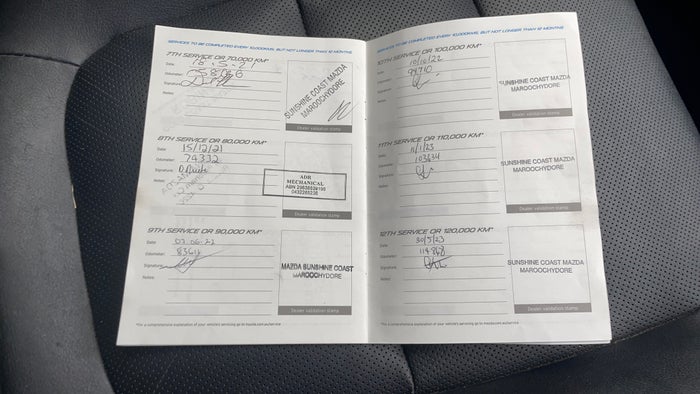 SERVICES TO BE COMPLETED EVERY 10,000KMS, BUT NOT LONGER THAN 12 MONTHS
7TH SERVICE OR 70,000 KM*
Date:
Odometer:
Signature:
Notes:
SUNSHINE COAST MAZDA
MAROOCHYDORE
Dealer validation stamp
8TH SERVICE OR 80,000 KM*
Date: 15/12/21
Odometer: 74332
Signature:
Notes:
ADR
MECHANICAL
Dealer validation stamp
9TH SERVICE OR 90,000 KM*
Date:
Odometer:
Signature:
Notes:
MAZDA SUNSHINE COAST
MAROOCHYDORE
Dealer validation stamp
*For a comprehensive explanation of your vehicle's servicing go to mazda.com.au/service
SERVICES TO BE COMPLETED EVERY 10,000KMS, BUT NOT LONGER THAN 12 MONTHS
10TH SERVICE OR 100,000 KM*
Date: 10/10/22
Odometer:
Signature:
Notes:
SUNSHINE COAST MAZDA
MAROOCHYDORE
Dealer validation stamp
11TH SERVICE OR 110,000 KM*
Date: 11/1/23
Odometer: 103634
Signature:
Notes:
SUNSHINE COAST MAZDA
MAROOCHYDORE
Dealer validation stamp
12TH SERVICE OR 120,000 KM*
Date: 30/5/23
Odometer:
Signature:
Notes:
SUNSHINE COAST MAZDA
MAROOCHYDORE
Dealer validation stamp
*For a comprehensive explanation of your vehicle's servicing go to mazda.com.au/service